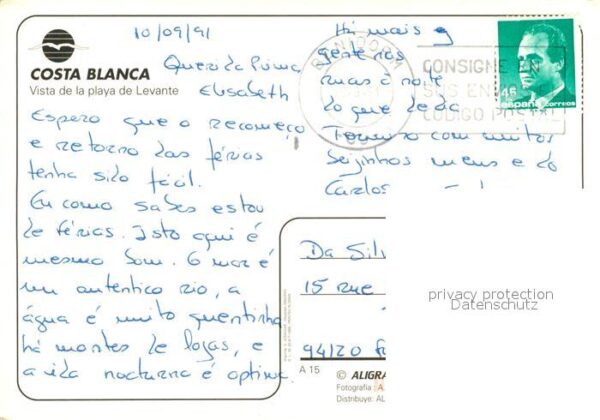 10/09/91
COSTA BLANCA
Vista de la playa de Levante
Querida Prima
Elisabeth
Espero que o recomeço
e retorno das férias
tenha sido fácil.
Eu como sabes estou
de férias. Isto aqui é
mesmo bom. O mar é
um autêntico rio, a
água é muito quentinha
há montes de lojas, e
a vida nocturna é optima.
Há mais
gente nas
ruas à noite
do que de dia
Termino com muitos
beijinhos meus e do
Carlos
BENIDORM
CONSIGNE EN
SUS EN
CODIGO POSTAL
45
españa CORREOS
Da Sil
15 rue
94120
privacy protection
Datenschutz
A 15
© ALIGRA
Fotografía: A.
Distribuye: AL